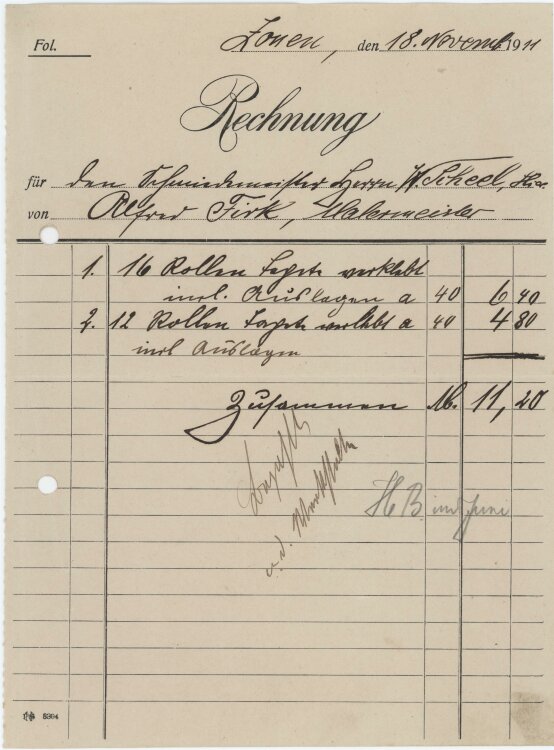 Fol.
Zonen, den 18. Novemb. 1911
Rechnung
für den Schmiedemeister Herrn W. Scheel, Hier.
von Alfred Firk, Malermeister
1. 16 Rollen Tapete verklebt
incl. Auslagen a 40 6 40
2. 12 Rollen Tapete verklebt a 40 4 80
incl Auslagen
Zusammen M. 11,20
H B. und
5304